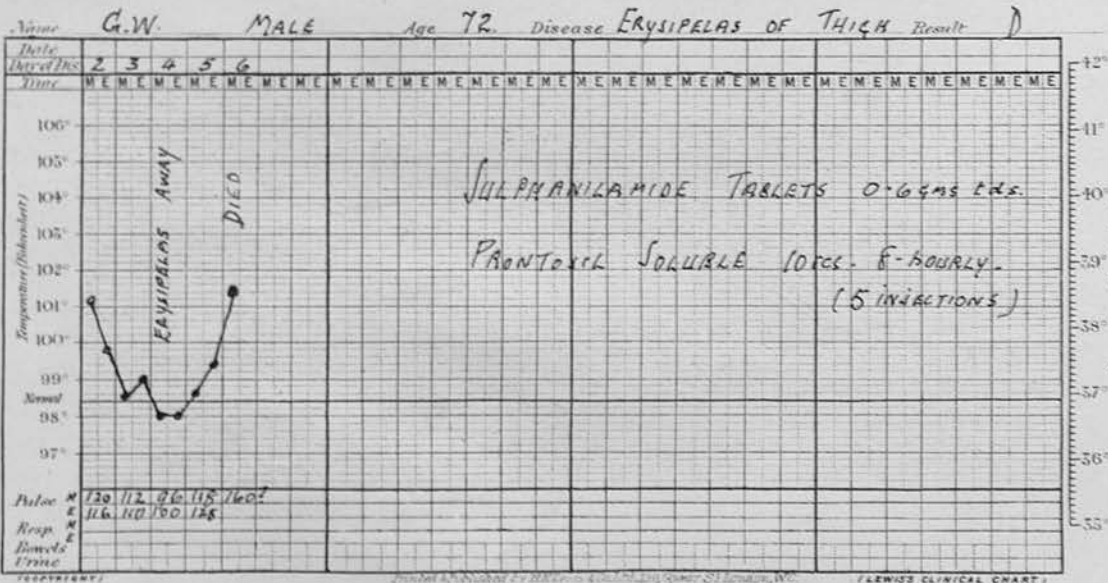 Name G.W. MALE Age 72. Disease ERYSIPELAS OF THIGH Result D
Date
Day of Dis 2 3 4 5 6
Time M E M E M E M E M E M E M E M E M E M E M E M E M E M E M E M E M E M E M E M E M E M E M E M E M E M E M E M E
Temperature (Fahrenheit)
106°
105°
104°
103°
102°
101°
100°
99°
Normal
98°
97°
ERYSIPELAS AWAY
DIED
SULPHANILAMIDE TABLETS 0.6 gms t.d.s.
PRONTOSIL SOLUBLE 10 ccs. 8-HOURLY.
(5 INJECTIONS)
42°
41°
40°
39°
38°
37°
36°
35°
Pulse M 120 112 96 118 160?
E 116 110 100 128
Resp. M
E
Bowels
Urine
(COPYRIGHT)
LEWIS'S CLINICAL CHART